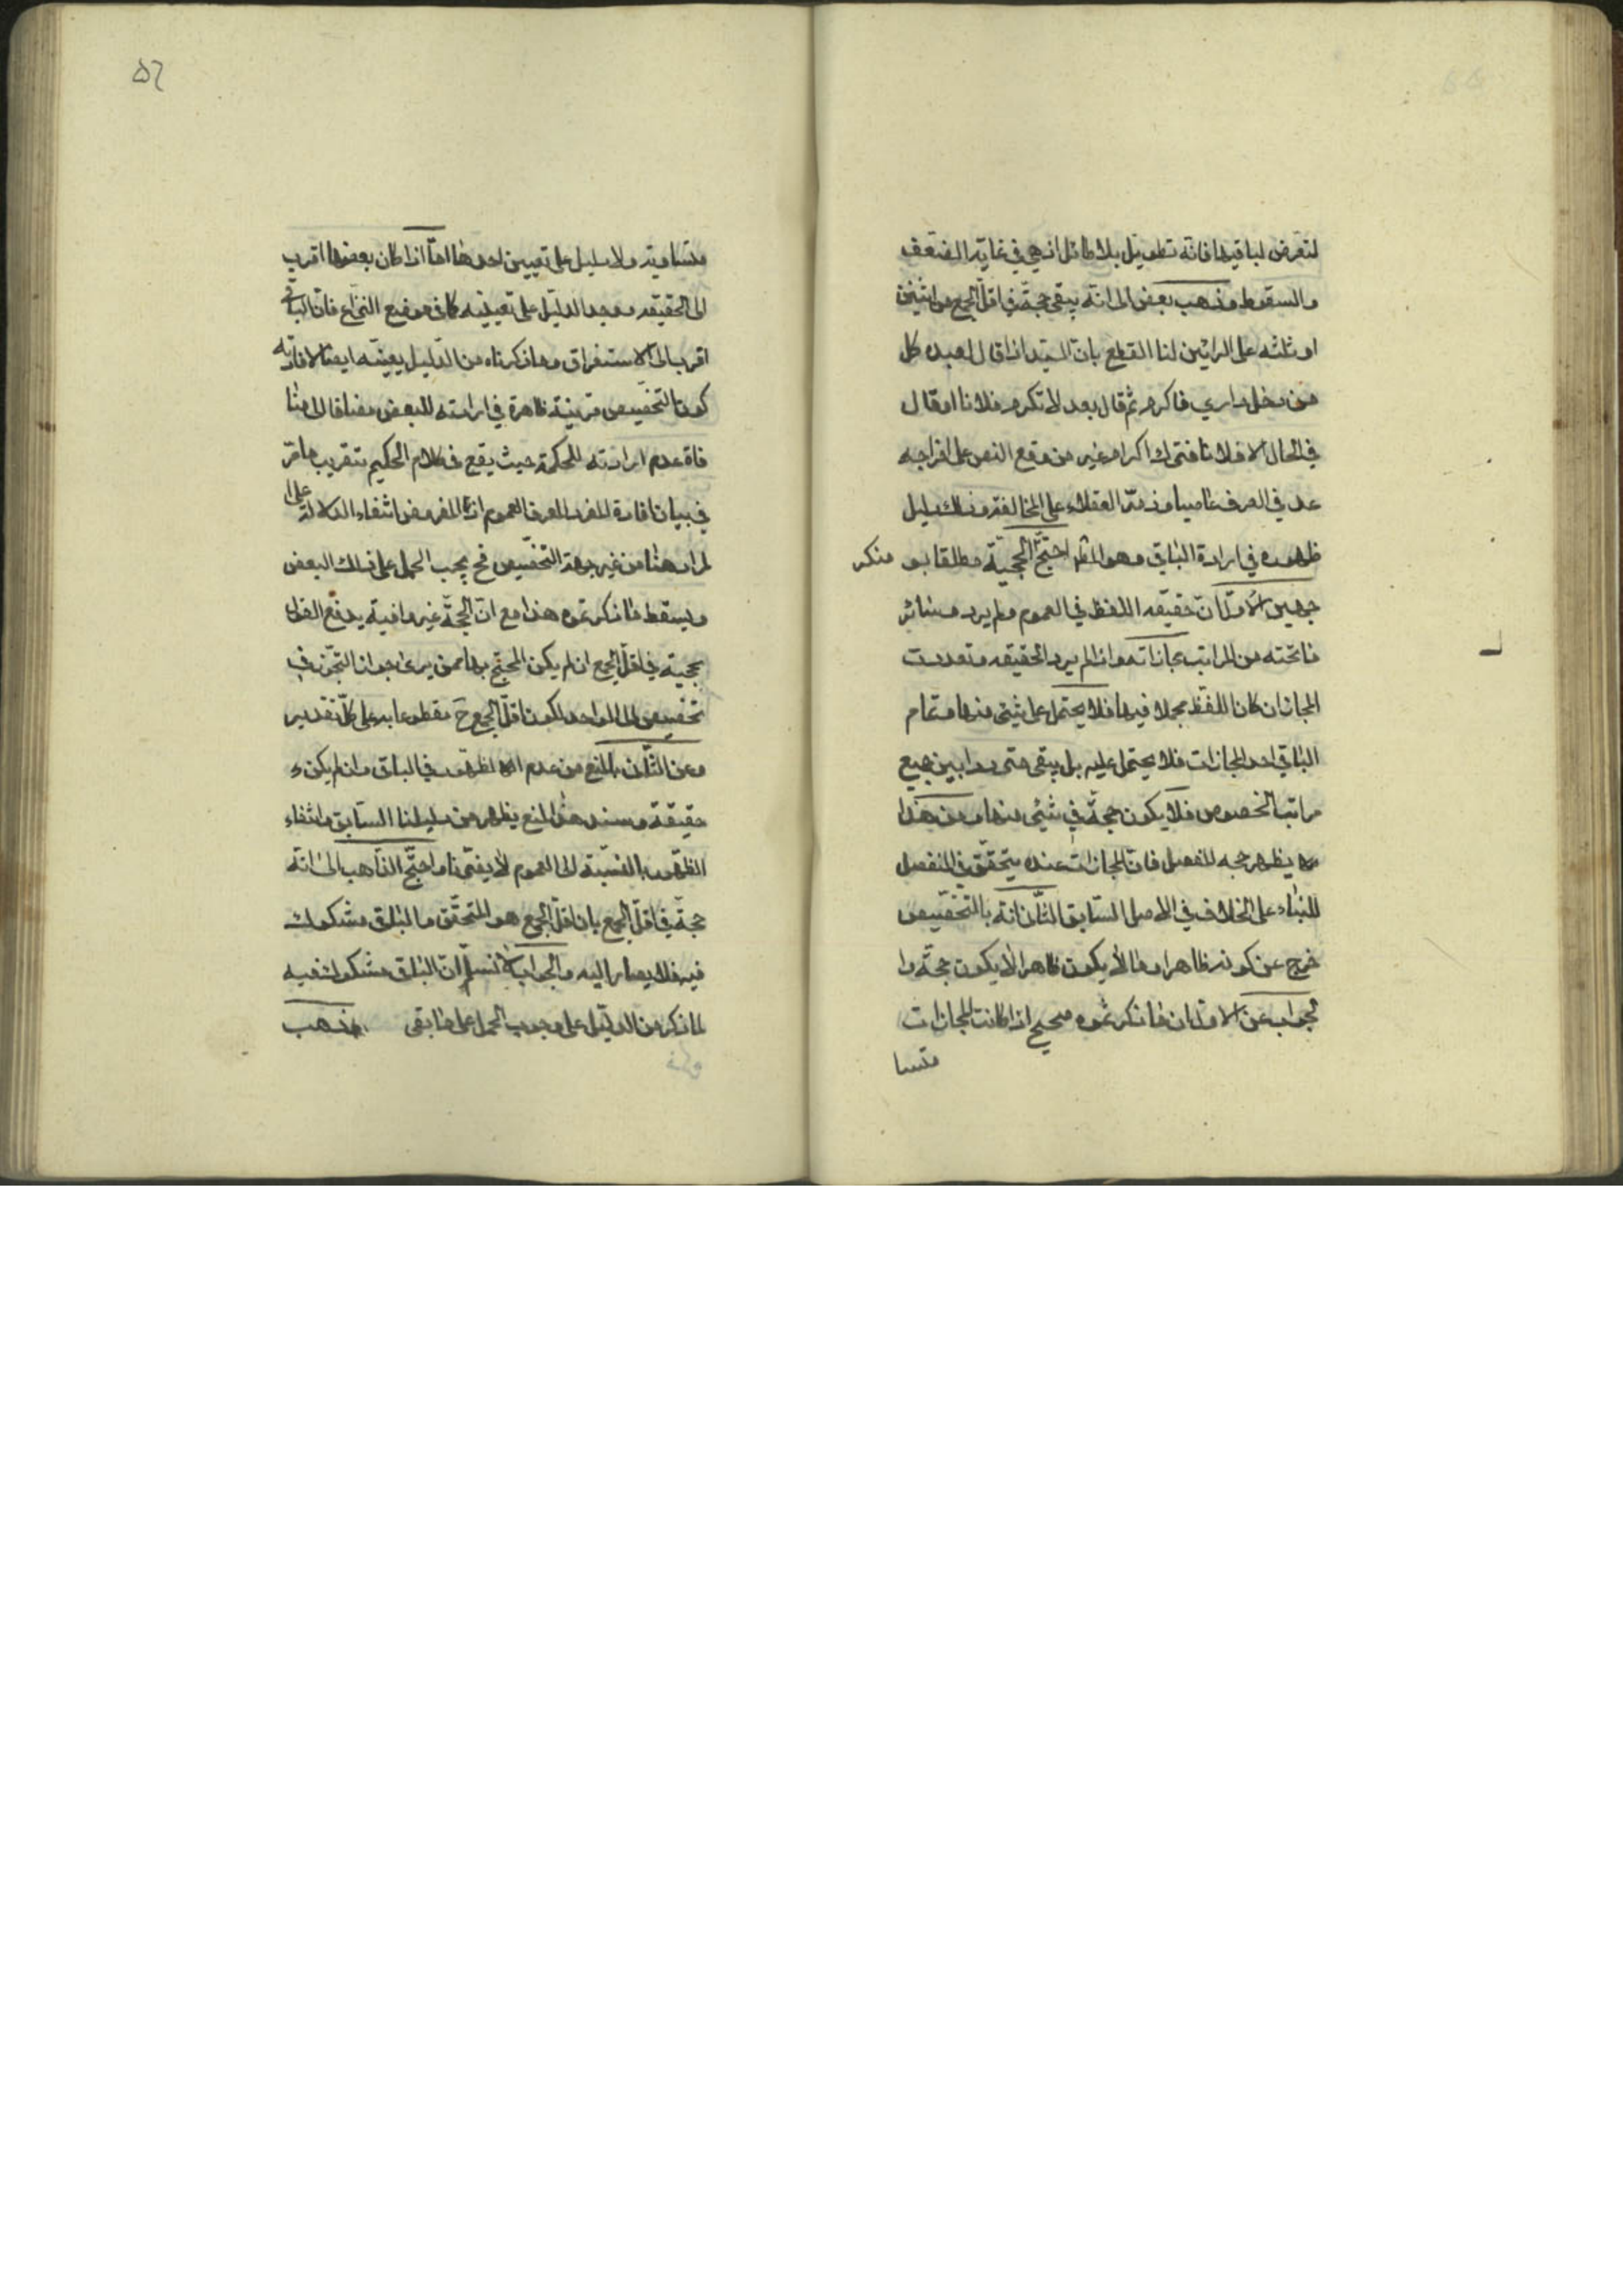 لتعرض لباقيها فانه تطويل بلا طائل اذ هي في غاية الضعف
والسقوط وذهب بعض الى انه يبقى حجة في اقل الجمع من اثنين
او ثلثه على الرائين لنا القطع بان السيد اذا قال لعبده كل
من دخل داري فاكرمه ثم قال بعد لا تكرم فلانا او قال
في الحال الا فلانا فترك اكرام غير من وقع النص على اخراجه
عد في العرف عاصيا وذمه العقلاء على المخالفة وذلك دليل
ظهوره في ارادة الباقي وهو المط احتج منكر الحجية مطلقا بو
جهين الاول ان حقيقه اللفظ في العموم ولم يرد وسائر
ما تحته من المراتب مجازاته واذا لم يرد الحقيقه وتعددت
المجازات كان اللفظ مجملا فيها فلا يحتمل على شيئ منها وتمام
الباقي احد المجازات فلا يحتمل عليه بل يبقى مترددا بين جميع
مراتب الخصوص فلا يكون حجة في شيئ منها ومن هذا
يظهر حجه المفصل فان المجازات عنده يتحقق في المنفصل
للبناء على الخلاف في الاصل السابق الثاني انه بالتخصيص
خرج عن كونه ظاهرا وما لا يكون ظاهرا لا يكون حجة وا
لجواب عن الاول ان ما ذكرتموه صحيح اذا كانت المجازات
متسا
۵٦
متساوية ولا دليل على تعيين احدها اما اذا كان بعضها اقرب
الى الحقيقه ووجد الدليل على تعيينه كما في موضع النزاع فان الباقي
اقرب الى الاستغراق وما ذكرناه من الدليل يعينه ايضا لافادته
كون التخصيص قرينة ظاهرة في ارادته للبعض مضافا الى منا
فاة عدم ارادته للحكمة حيث يقع في كلام الحكيم بتقريب ما مر
في بيان افادة المفرد المعرف العموم اذ المفروض انتفاء الدلالة على ا
لمراد هنا من غير جهة التخصيص فح يجب الحمل على ذلك البعض
ويسقط ما ذكرتموه هذا مع ان الحجة غير وافية بدفع القول
بحجيته في اقل الجمع ان لم يكن المحتج بها ممن يرى جواز التجوز في
تخصيص الى الواحد لكون اقل الجمع ح مقطوعا به على كل تقدير
وعن الثاني بالمنع من عدم الظهور في الباقي وان لم يكن
حقيقة وسند هذا المنع يظهر من دليلنا السابق وانتفاء
الظهور بالنسبة الى العموم لا يضرنا واحتج الذاهب الى انه
حجة في اقل الجمع بان اقل الجمع هو المتحقق والباقي مشكوك
فيه فلا يصار اليه والجواب لا نسلم ان الباقي مشكوك فيه
لما ذكر من الدليل على وجوب الحمل على ما بقي وذهب